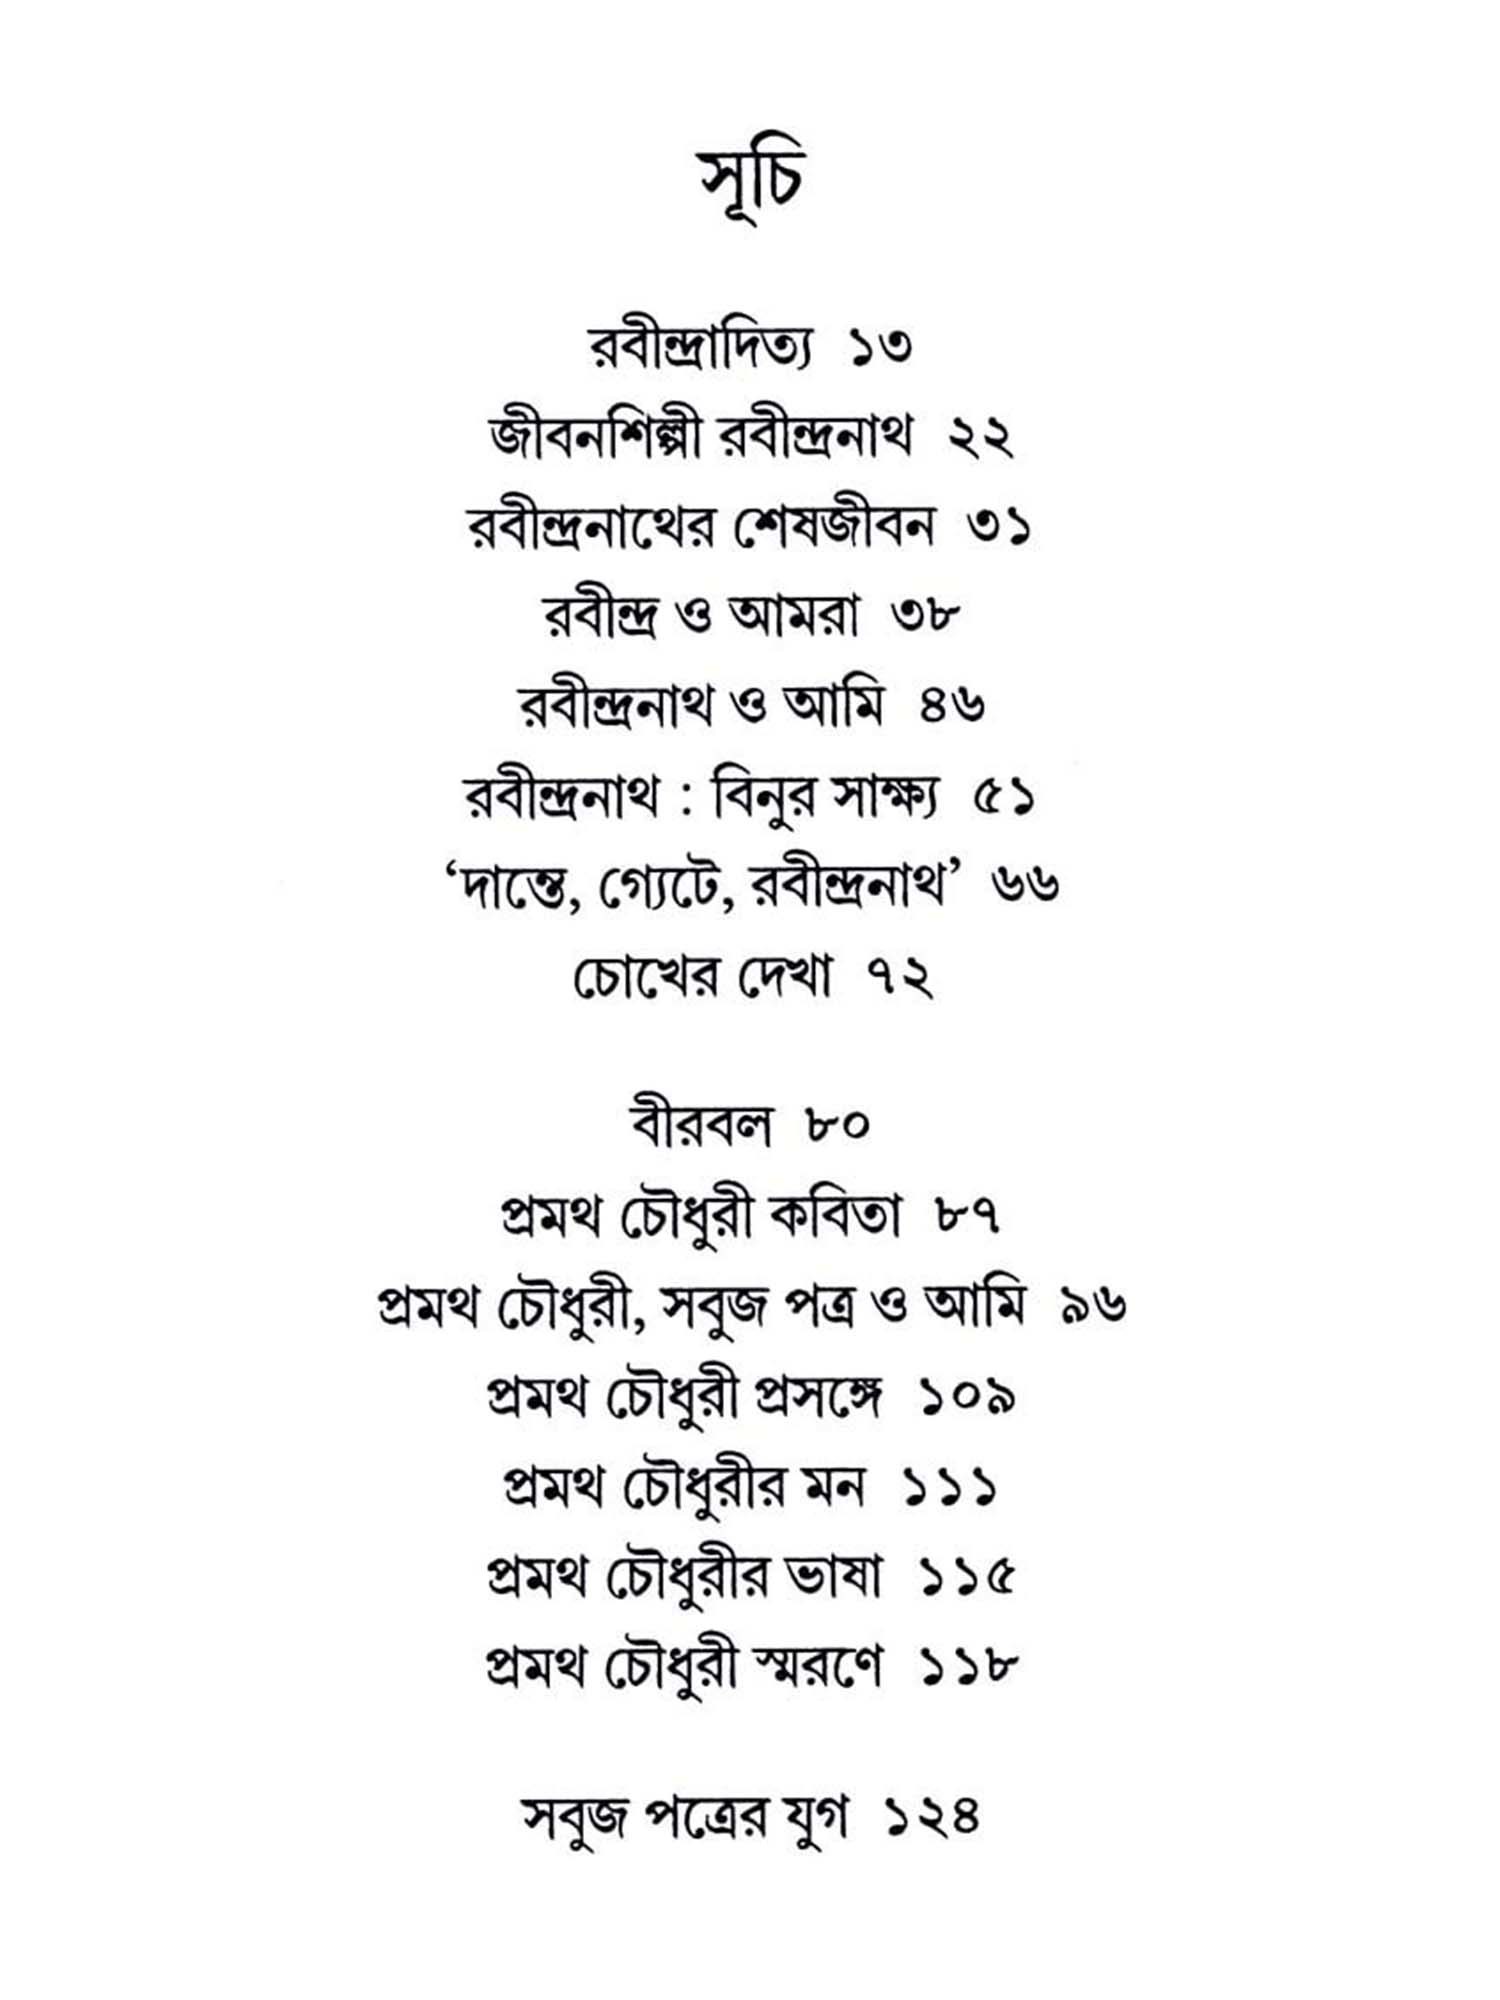 সূচি
রবীন্দ্রাদিত্য ১৩
জীবনশিল্পী রবীন্দ্রনাথ ২২
রবীন্দ্রনাথের শেষজীবন ৩১
রবীন্দ্র ও আমরা ৩৮
রবীন্দ্রনাথ ও আমি ৪৬
রবীন্দ্রনাথ : বিনুর সাক্ষ্য ৫১
‘দান্তে, গ্যেটে, রবীন্দ্রনাথ’ ৬৬
চোখের দেখা ৭২
বীরবল ৮০
প্রমথ চৌধুরী কবিতা ৮৭
প্রমথ চৌধুরী, সবুজ পত্র ও আমি ৯৬
প্রমথ চৌধুরী প্রসঙ্গে ১০৯
প্রমথ চৌধুরীর মন ১১১
প্রমথ চৌধুরীর ভাষা ১১৫
প্রমথ চৌধুরী স্মরণে ১১৮
সবুজ পত্রের যুগ ১২৪